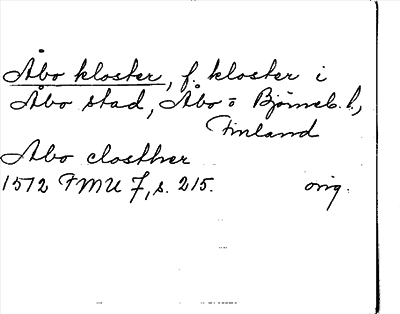 Åbo kloster, f. kloster i
Åbo stad, Åbo o Björneb. l.,
Finland
Abo closther
1512 FMU 7, s. 215. orig.